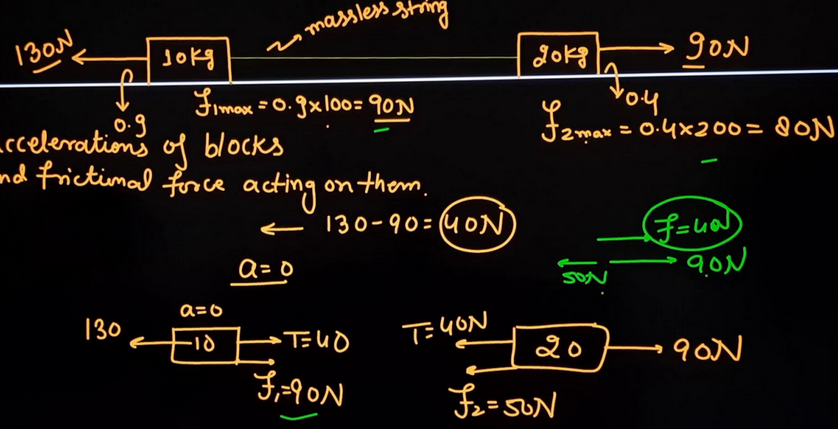 massless string
130N
10kg
20kg
90N
0.9
f1max = 0.9x100 = 90N
0.4
f2max = 0.4x200 = 80N
ccelerations of blocks
nd frictional force acting on them.
← 130-90 = 40N
f=40N
50N
90N
a=0
a=0
130
10
T=40
f1=90N
T=40N
20
90N
f2=50N